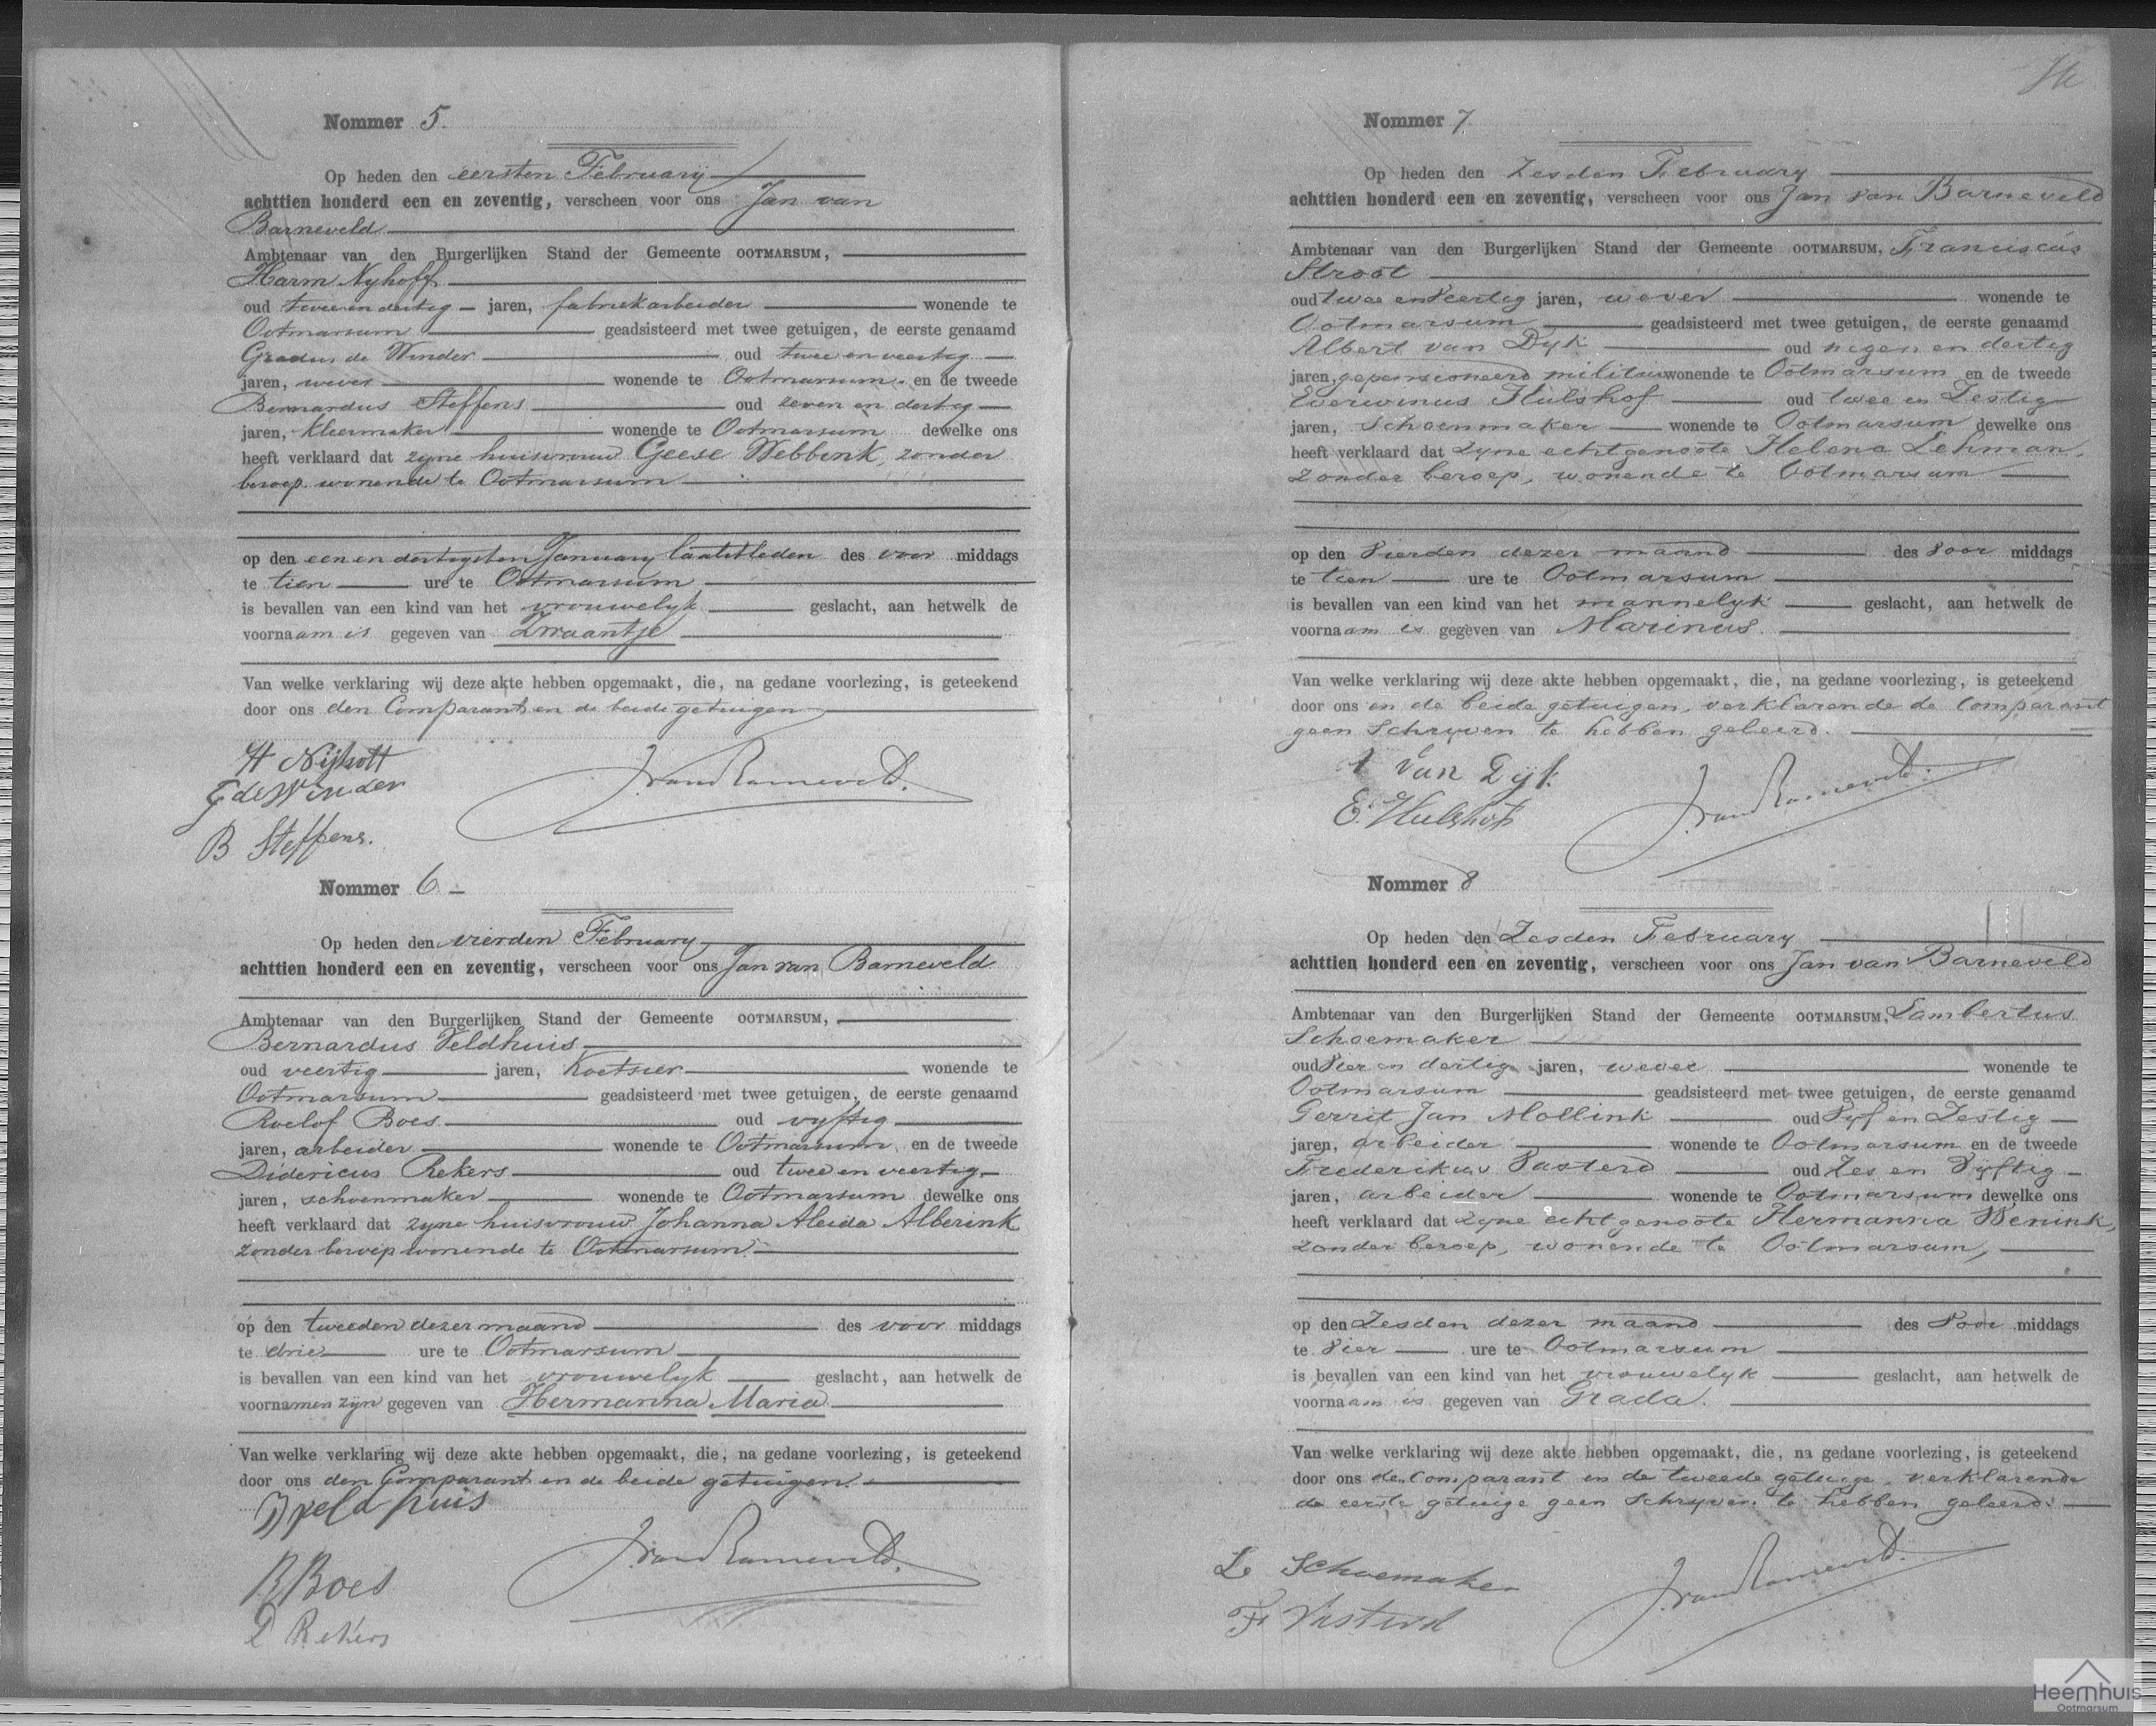 Nommer 5.
Op heden den eersten February
achttien honderd een en zeventig, verscheen voor ons Jan van
Barneveld
Ambtenaar van den Burgerlijken Stand der Gemeente OOTMARSUM,
Harm Nyhoff
oud twee en dertig jaren, fabriekarbeider wonende te
Ootmarsum geadsisteerd met twee getuigen, de eerste genaamd
Gradus de Winder oud twee en veertig
jaren, wever wonende te Ootmarsum en de tweede
Bernardus Steffens oud zeven en dertig
jaren, kleermaker wonende te Ootmarsum dewelke ons
heeft verklaard dat zyne huisvrouw Geese Webbink, zonder
beroep wonende te Ootmarsum
op den een en dertigsten January laatstleden des voor middags
te tien ure te Ootmarsum
is bevallen van een kind van het vrouwelyk geslacht, aan hetwelk de
voornaam is gegeven van Zwaantje
Van welke verklaring wij deze akte hebben opgemaakt, die, na gedane voorlezing, is geteekend
door ons den Comparant en de beide getuigen
H Nijhoff
G de Winder
J van Barneveld.
B Steffens.
Nommer 6.
Op heden den vierden February
achttien honderd een en zeventig, verscheen voor ons Jan van Barneveld
Ambtenaar van den Burgerlijken Stand der Gemeente OOTMARSUM,
Bernardus Veldhuis
oud veertig jaren, Koetsier wonende te
Ootmarsum geadsisteerd met twee getuigen, de eerste genaamd
Roelof Boes oud vyftig
jaren, arbeider wonende te Ootmarsum en de tweede
Didericus Rekers oud twee en veertig
jaren, schoenmaker wonende te Ootmarsum dewelke ons
heeft verklaard dat zyne huisvrouw Johanna Aleida Alberink
zonder beroep wonende te Ootmarsum
op den tweeden dezer maand des voor middags
te drie ure te Ootmarsum
is bevallen van een kind van het vrouwelyk geslacht, aan hetwelk de
voornamen zyn gegeven van Hermanna Maria
Van welke verklaring wij deze akte hebben opgemaakt, die, na gedane voorlezing, is geteekend
door ons den Comparant en de beide getuigen.
Veldhuis
J van Barneveld.
R Boes
D Rekers
Nommer 7
Op heden den Zesden February
achttien honderd een en zeventig, verscheen voor ons Jan van Barneveld
Ambtenaar van den Burgerlijken Stand der Gemeente OOTMARSUM, Franciscus
Stroot
oud twee en veertig jaren, wever wonende te
Ootmarsum geadsisteerd met twee getuigen, de eerste genaamd
Albert van Dyk oud negen en dertig
jaren, gepensioneerd militair wonende te Ootmarsum en de tweede
Everwinus Hulshof oud twee en Zestig
jaren, Schoenmaker wonende te Ootmarsum dewelke ons
heeft verklaard dat Zyne echtgenoote Helena Lehman,
zonder beroep, wonende te Ootmarsum
op den vierden dezer maand des voor middags
te tien ure te Ootmarsum
is bevallen van een kind van het mannelyk geslacht, aan hetwelk de
voornaam is gegeven van Marinus.
Van welke verklaring wij deze akte hebben opgemaakt, die, na gedane voorlezing, is geteekend
door ons en de beide getuigen, verklarende de Comparant
geen Schryven te hebben geleerd.
A van Dijk
E. Hulshof
J van Barneveld.
Nommer 8
Op heden den Zesden February
achttien honderd een en zeventig, verscheen voor ons Jan van Barneveld
Ambtenaar van den Burgerlijken Stand der Gemeente OOTMARSUM, Lambertus
Schoemaker
oud vier en dertig jaren, wever wonende te
Ootmarsum geadsisteerd met twee getuigen, de eerste genaamd
Gerrit Jan Mollink oud vyf en Zestig
jaren, arbeider wonende te Ootmarsum en de tweede
Frederikus Vasterd oud Zes en vyftig
jaren, arbeider wonende te Ootmarsum dewelke ons
heeft verklaard dat Zyne echtgenoote Hermanna Wenink,
zonder beroep, wonende te Ootmarsum,
op den Zesden dezer maand des voor middags
te vier ure te Ootmarsum
is bevallen van een kind van het vrouwelyk geslacht, aan hetwelk de
voornaam is gegeven van Grada.
Van welke verklaring wij deze akte hebben opgemaakt, die, na gedane voorlezing, is geteekend
door ons de Comparant en de tweede getuige, verklarende
de eerste getuige geen Schryven te hebben geleerd.
L Schoemaker
J van Barneveld.
F Vasterd
Heemhuis
Ootmarsum